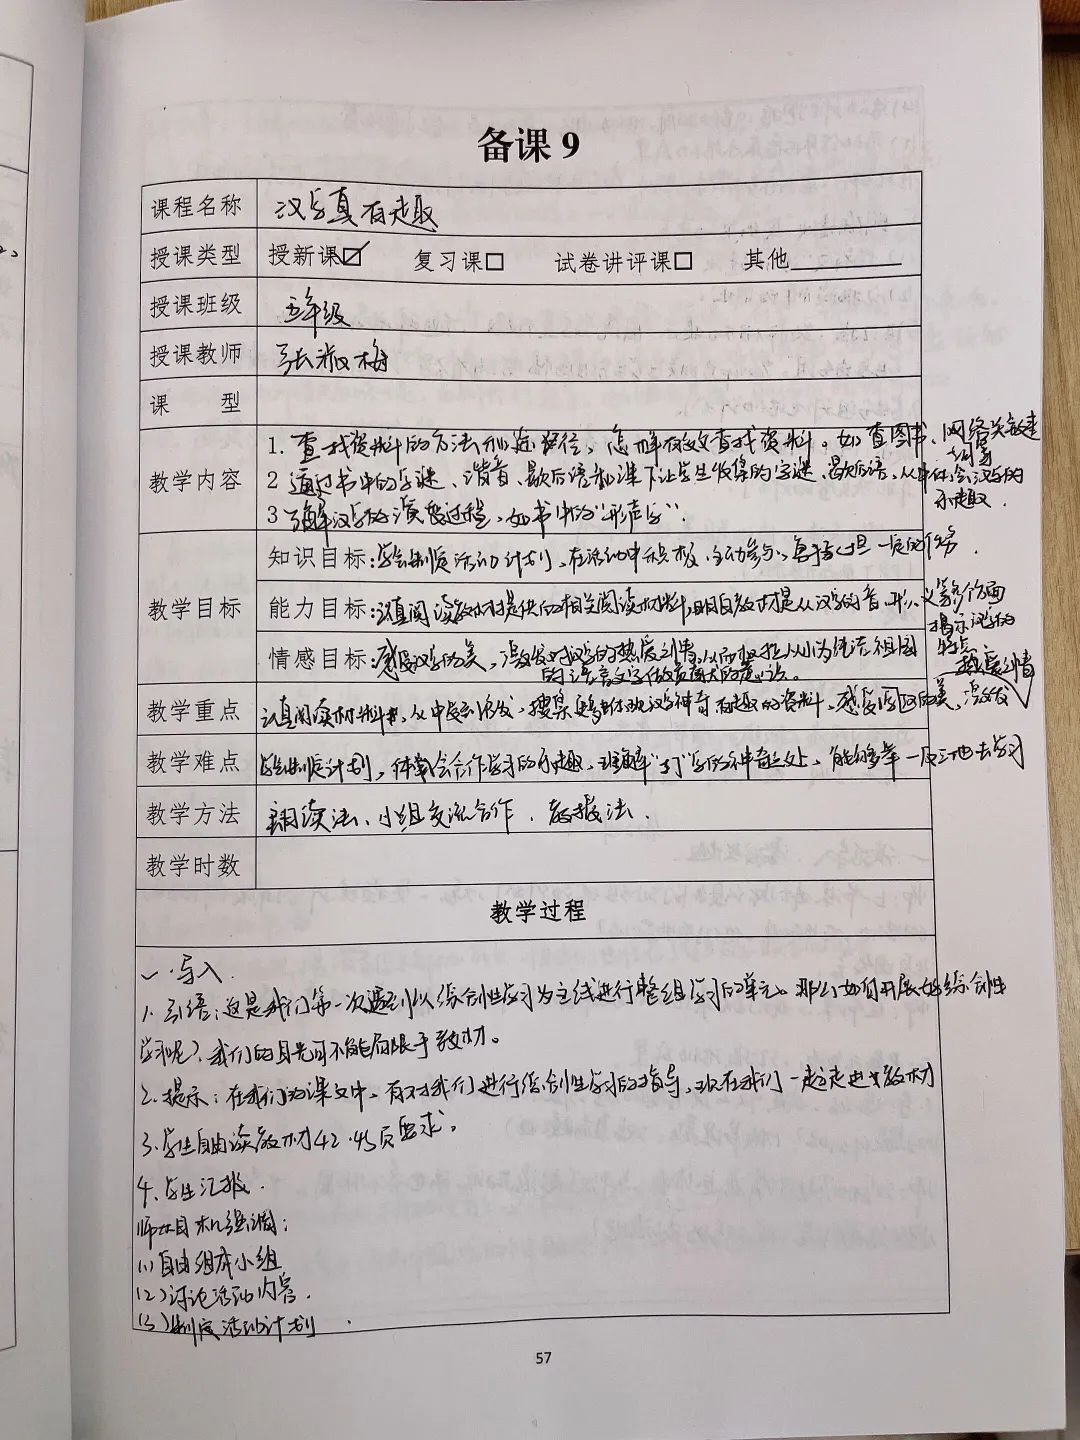 备课 9
课程名称 汉字真有趣
授课类型 授新课☑ 复习课□ 试卷讲评课□ 其他
授课班级 五年级
授课教师 张淑梅
课 型
教学内容
1. 查找资料的方法和途径，怎样有效查找资料。如查图书、网络
2 通过书中的字谜、谐音、歇后语和课下让学生收集的字谜、歇后语，从中体会汉字的
乐趣.
3 了解汉字的演变过程，如书中的“形声字”.
教学目标
知识目标:学会制定活动计划，在活动中积极、主动参与、勇于承担一定的任务.
能力目标:认真阅读教材提供的相关阅读材料,明白教材是从汉字的音、形、义等多个方面
揭示汉字的
特点.
情感目标:感受汉字的美，激发对汉字的热爱之情,从而树立从小为纯洁祖国
的语言文字做贡献的意识。
教学重点 认真阅读材料，从中受到启发，搜集更多体现汉字神奇、有趣的资料，感受汉字的美，激发
热爱之情
教学难点 学会制定计划，体会合作学习的乐趣，理解“字的神奇之处，能够举一反三地去学习
教学方法 朗读法、小组交流合作.
教学时数
教学过程
一. 导入.
1. 引语:这是我们第一次遇到以综合性学习为主线进行整组学习的单元。那么如何开展好综合性
学习呢?我们的目光可不能局限于教材。
2. 提示:在我们的课文中，有对我们进行综合性学习的指导，现在我们一起走进教材
3. 学生自由读教材42.45页要求。
4. 学生汇报.
师相机强调:
(1)自由组成小组
(2)讨论活动内容.
(3)制定活动计划.
57